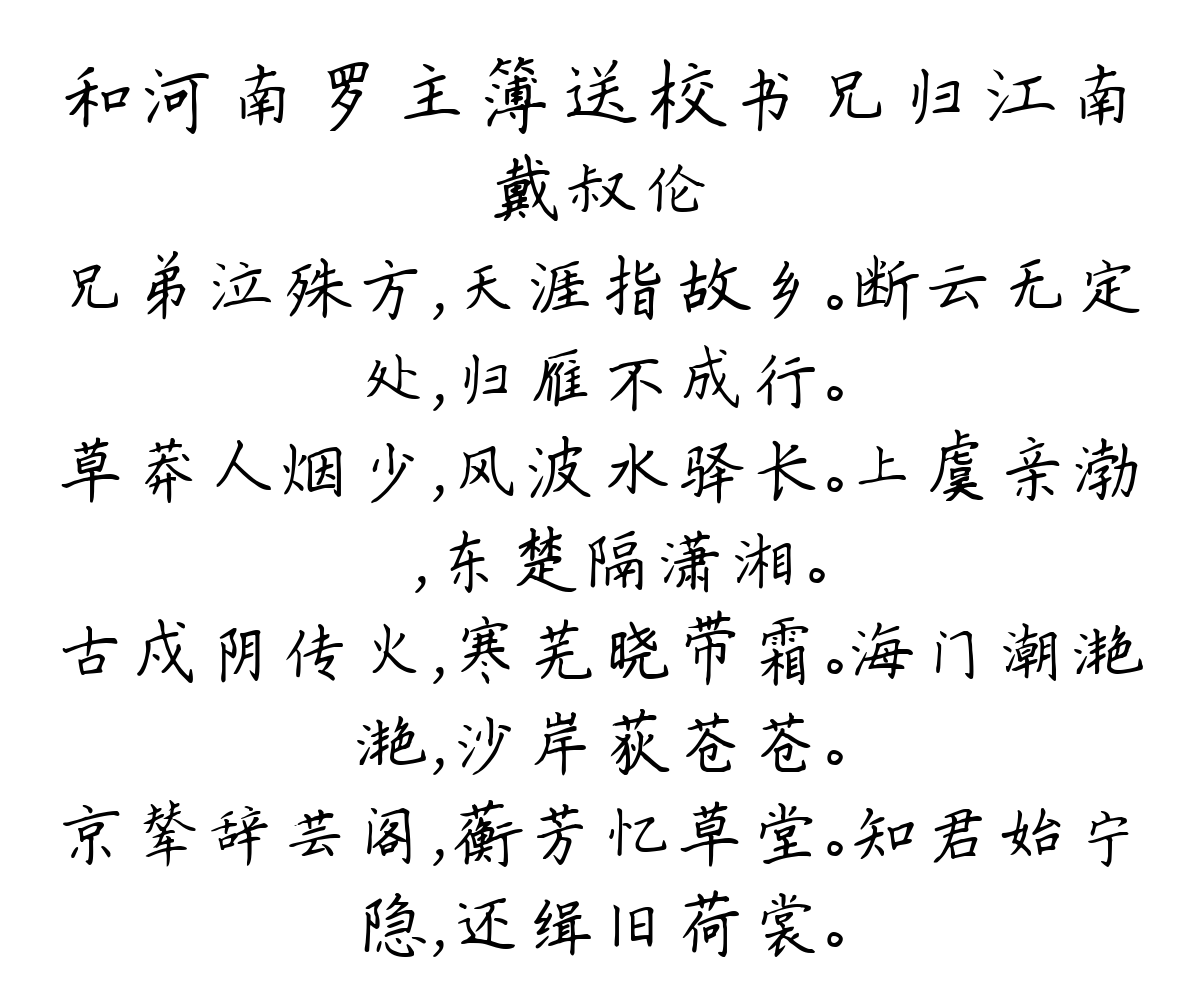 和河南罗主簿送校书兄归江南
戴叔伦
兄弟泣殊方,天涯指故乡。断云无定
处,归雁不成行。
草莽人烟少,风波水驿长。上虞亲渤
,东楚隔潇湘。
古戍阴传火,寒芜晓带霜。海门潮滟
滟,沙岸荻苍苍。
京辇辞芸阁,蘅芳忆草堂。知君始宁
隐,还缉旧荷裳。